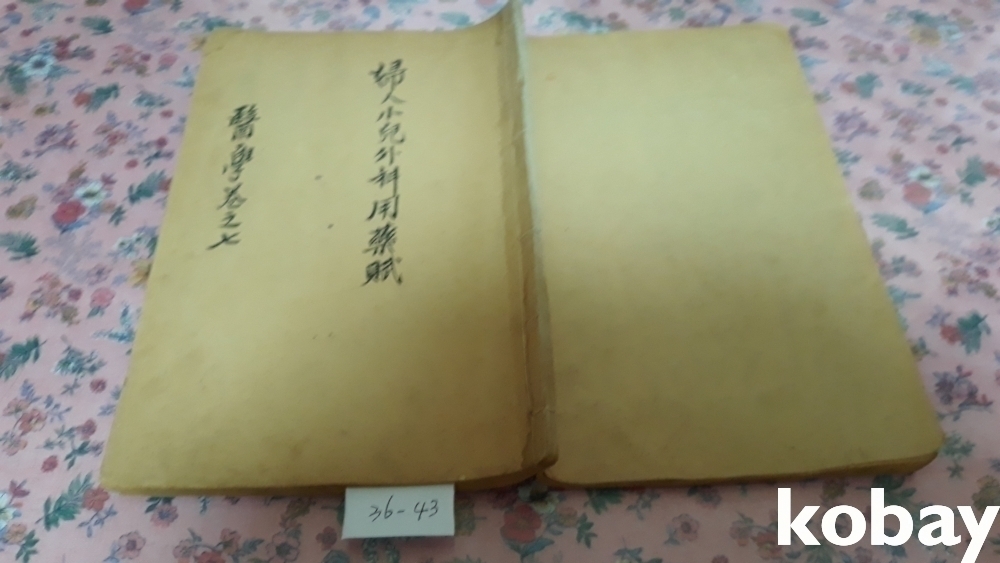 婦人小兒外科用藥賦
醫學卷之七
36-43
kobay